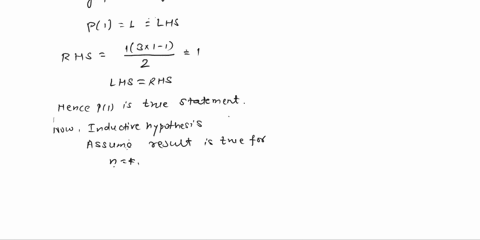 P(1) = L = LHS
RHS = 1(3×1-1) / 2 = 1
LHS = RHS
Hence P(1) is true statement.
Now, Inductive hypothesis
Assume result is true for
n=k.